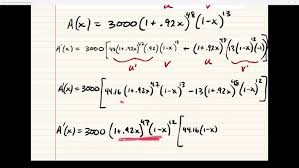 A(x) = 3000 (1+.92x)^48 (1-x)^13
A'(x) = 3000 [48(1+.92x)^47 (.92) (1-x)^13 + (1+.92x)^48 (13(1-x)^12 (-1))]
u' v u v'
A'(x) = 3000 [44.16 (1+.92x)^47 (1-x)^13 - 13(1+.92x)^48 (1-x)^12]
A'(x) = 3000 (1+.92x)^47 (1-x)^12 [44.16(1-x)